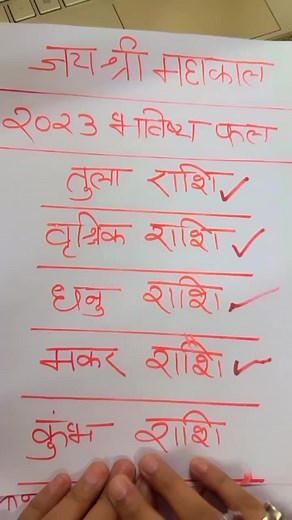 जय श्री महाकाल
२०२३ भविष्य फल
तुला राशि
वृश्चिक राशि
धनु राशि
मकर राशि
कुंभ राशि